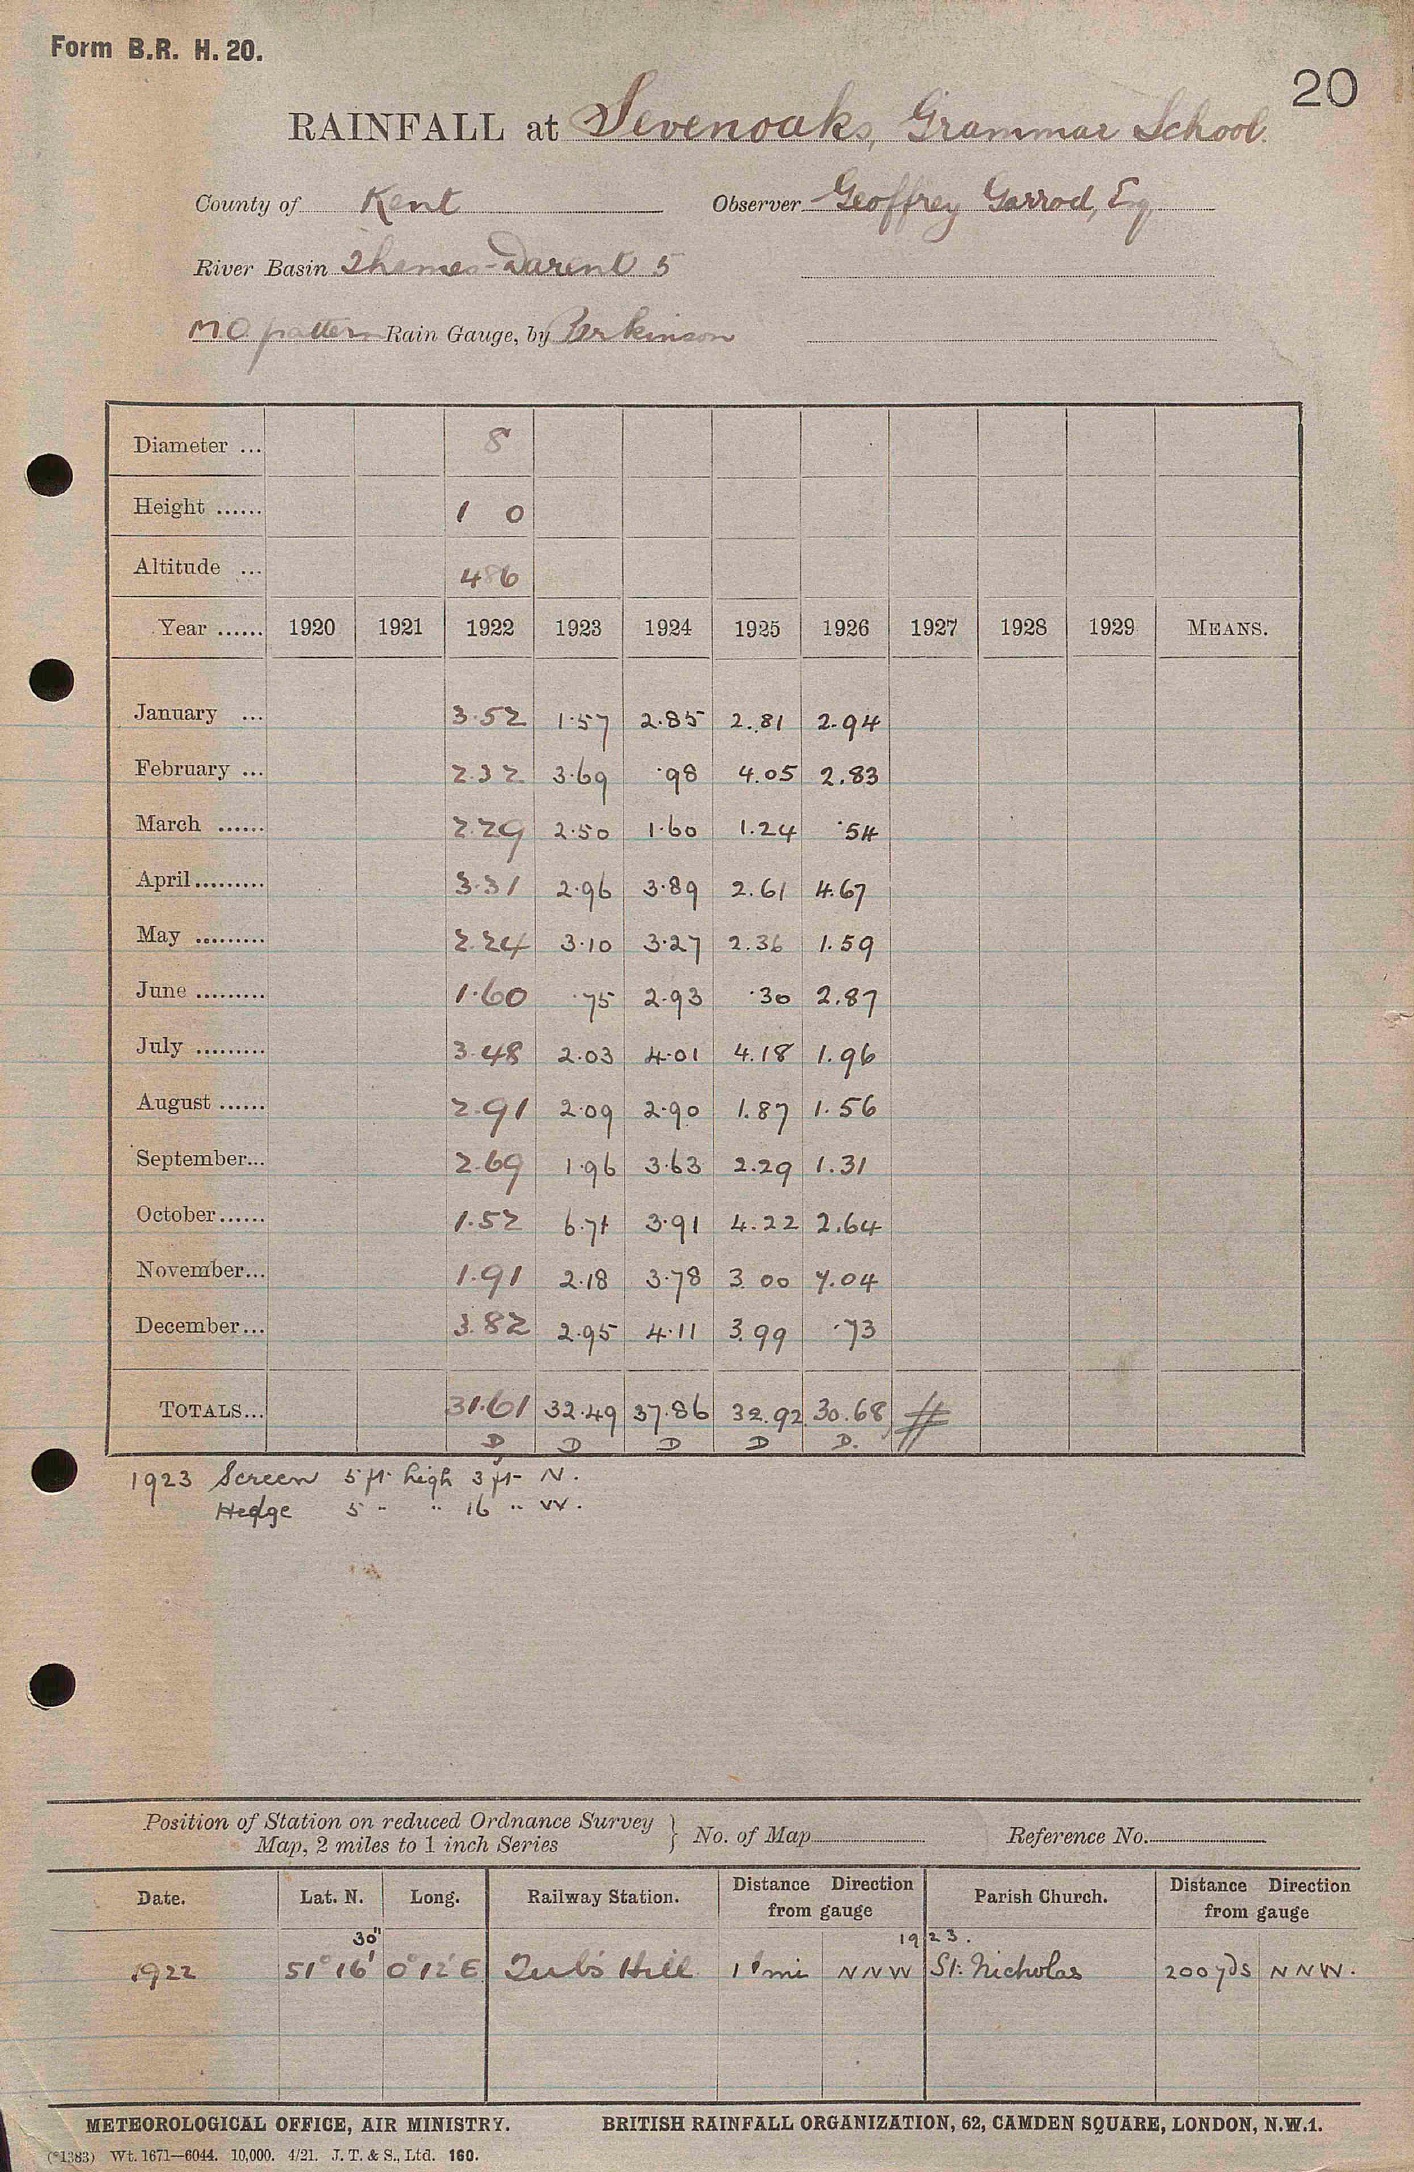 Form B.R. H. 20.
20
RAINFALL at Sevenoaks, Grammar School.
County of Kent Observer Geoffrey Garrod, Esq
River Basin Thames-Darent 5
MO pattern Rain Gauge, by Perkinson
Diameter ... 8
Height ...... 1 0
Altitude ... 486
Year ...... 1920 1921 1922 1923 1924 1925 1926 1927 1928 1929 MEANS.
January ... 3.52 1.57 2.85 2.81 2.94
February ... 2.32 3.69 .98 4.05 2.83
March ...... 2.29 2.50 1.60 1.24 .54
April ......... 3.31 2.96 3.89 2.61 4.67
May ......... 2.24 3.10 3.27 2.36 1.59
June ......... 1.60 .75 2.93 .30 2.87
July ......... 3.48 2.03 4.01 4.18 1.96
August ...... 2.91 2.09 2.90 1.87 1.56
September... 2.69 1.96 3.63 2.29 1.31
October...... 1.52 6.71 3.91 4.22 2.64
November... 1.91 2.18 3.78 3.00 7.04
December... 3.82 2.95 4.11 3.99 .73
TOTALS... 31.61 32.49 37.86 32.92 30.68 #
D D D D D.
1923 Screen 5 ft. high 3 ft. N.
Hedge 5 " " 16 " W.
Position of Station on reduced Ordnance Survey
Map, 2 miles to 1 inch Series } No. of Map Reference No.
Date. Lat. N. Long. Railway Station. Distance Direction from gauge Parish Church. Distance Direction from gauge
30" 1923.
1922 51° 16' 0° 12' E Tub's Hill 1 mi NNW St. Nicholas 200 yds NNW.
METEOROLOGICAL OFFICE, AIR MINISTRY. BRITISH RAINFALL ORGANIZATION, 62, CAMDEN SQUARE, LONDON, N.W.1.
(*1383) Wt. 1671—6044. 10,000. 4/21. J. T. & S., Ltd. 160.